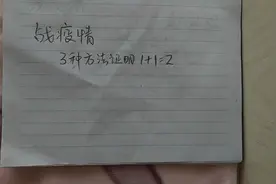 战疫情
3种方法证明1+1=2